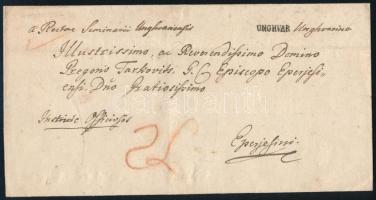 a Rectore Seminarii Unghvariensis UNGHVAR Unghvarino
Illustrissimo, ac Reverendissimo Domino
Gregorio Tarkovits, G. C. Episcopo Eperjesi-
ensi, Dno Gratiosissimo
Officiosis
Eperjessini.